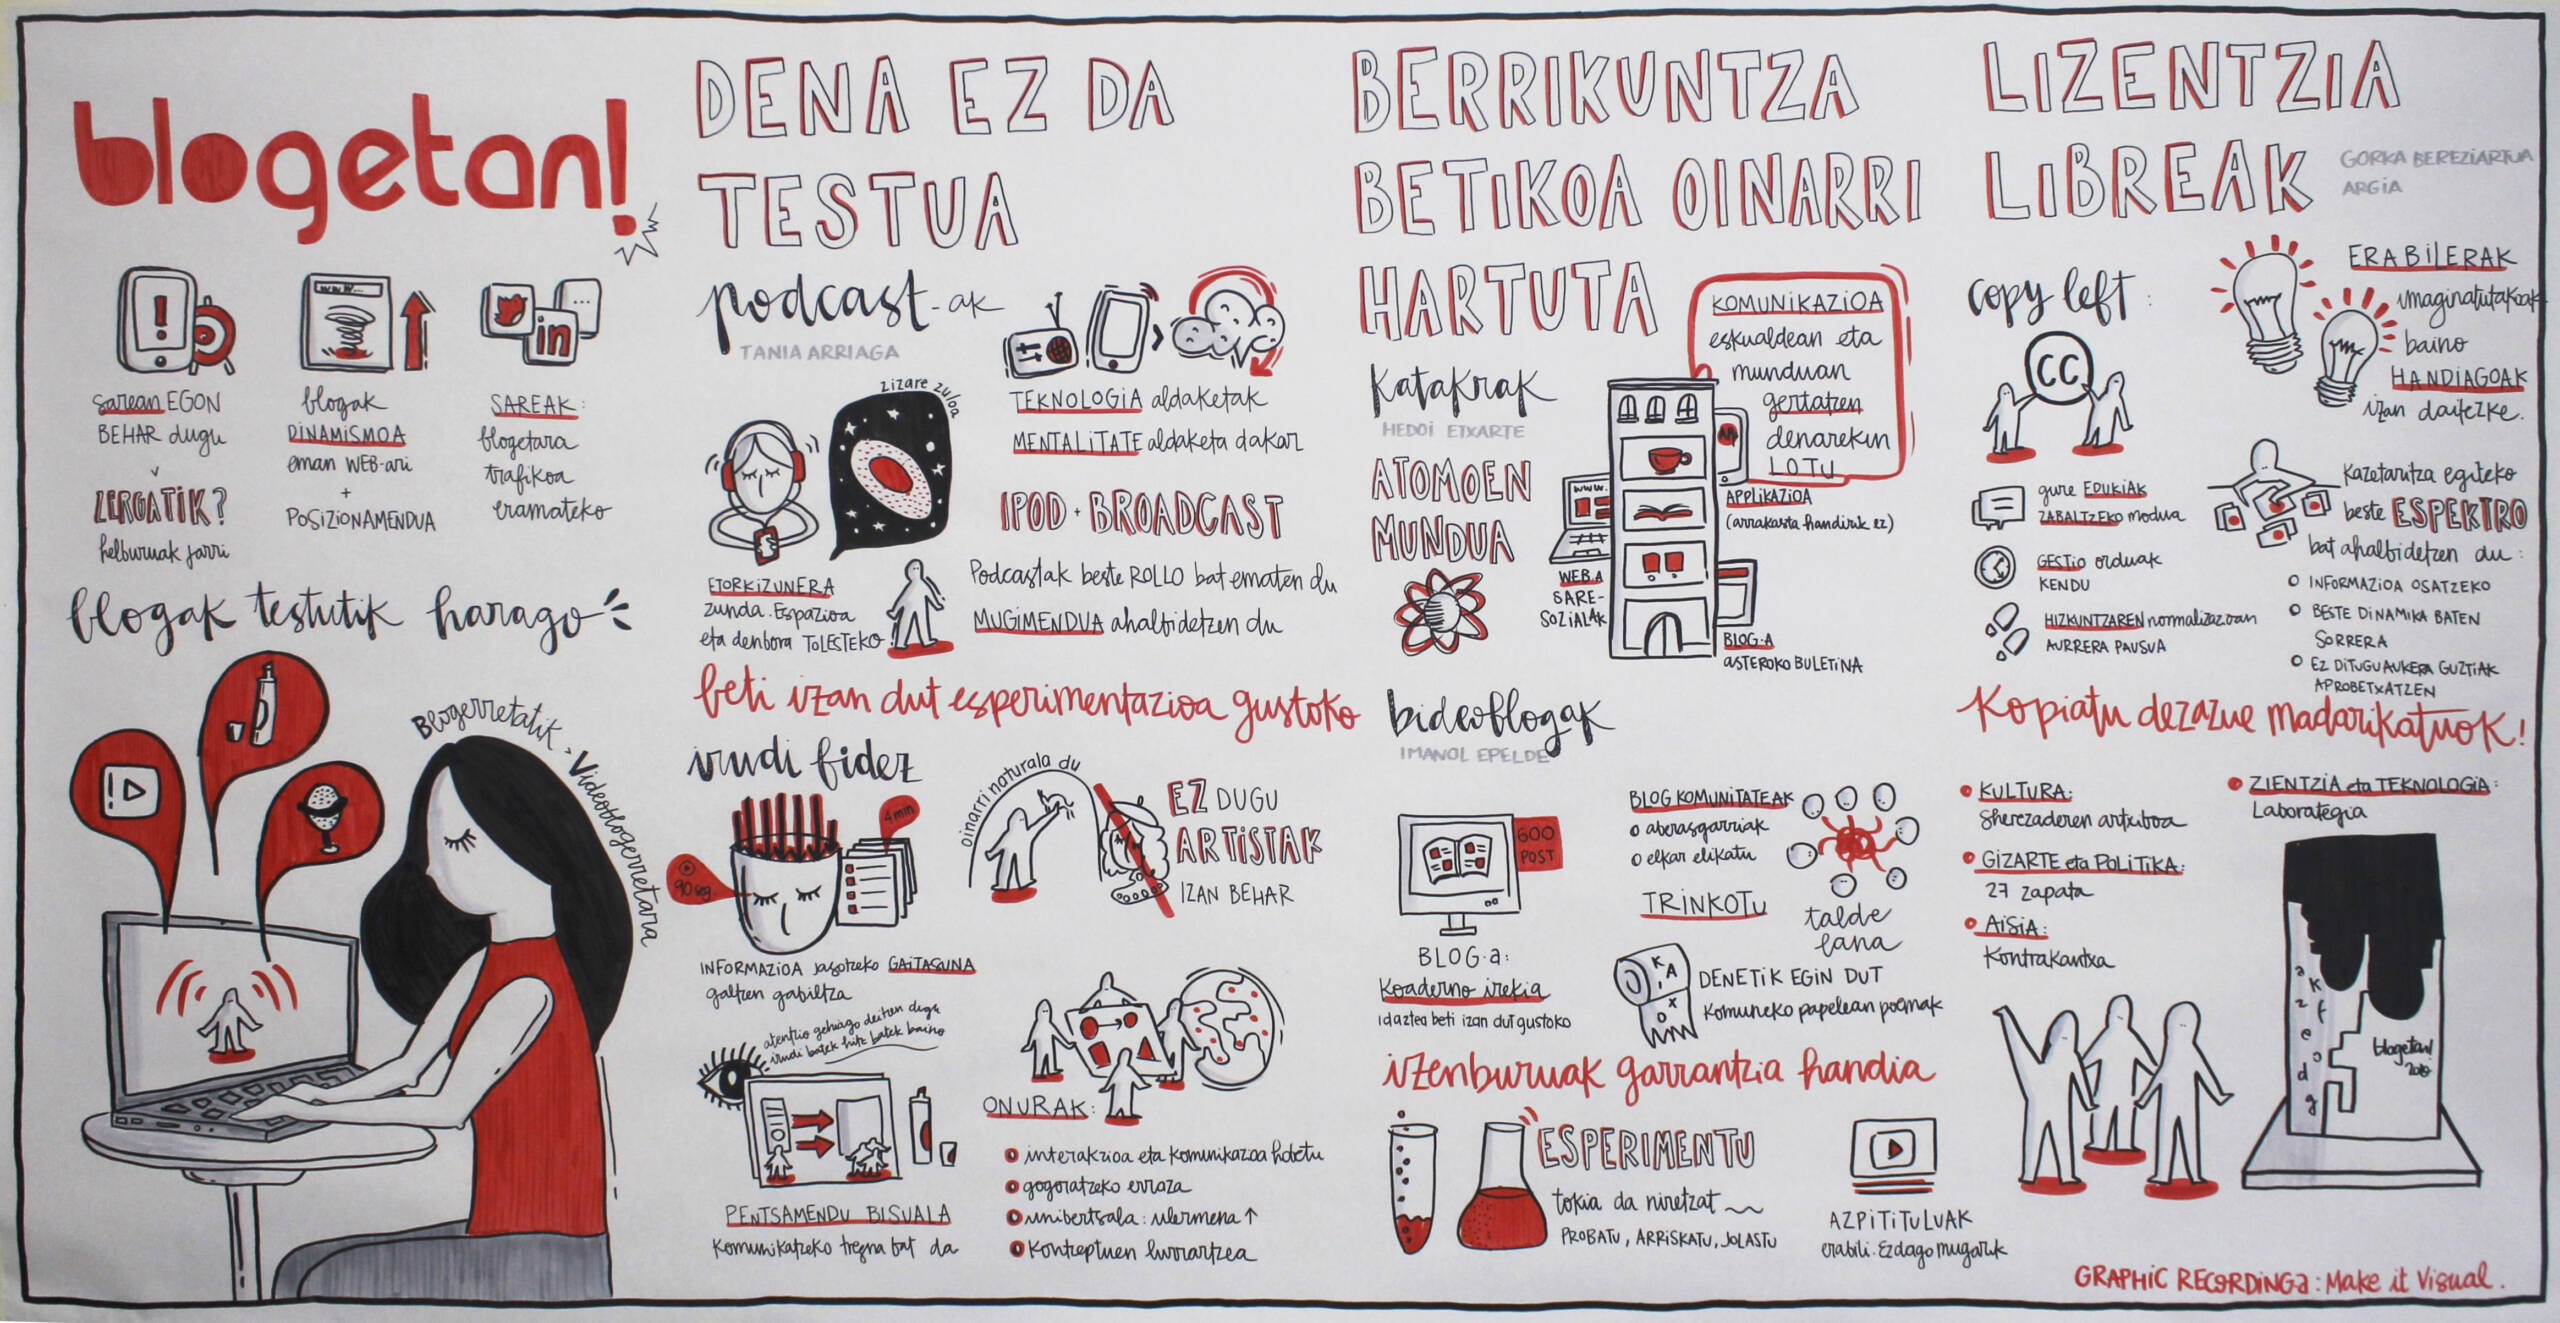 blogetan!
!
sarean EGON
BEHAR dugu
ZERGATIK?
helburuak jarri
www...
blogak
DINAMISMOA
eman WEB-ari
+
POSIZIONAMENDUA
...
in
SAREAK:
blogetara
trafikoa
eramateko
blogak testutik harago
Blogerretatik > Videoblogerretara
DENA EZ DA
TESTUA
podcast-ak
TANIA ARRIAGA
zizare zuloa
ETORKIZUNERA
zunda. Espazioa
eta denbora TOLESTEKO
TEKNOLOGIA aldaketak
MENTALITATE aldaketa dakar
IPOD + BROADCAST
Podcastak beste ROLLO bat ematen du
MUGIMENDUA ahalbidetzen du
beti izan dut esperimentazioa gustoko
irudi bidez
4 min
90 seg
INFORMAZIOA jasotzeko GAITASUNA
galtzen gabiltza
oinarri naturala du
EZ DUGU
ARTISTAK
IZAN BEHAR
atentzio gehiago deitzen digu
irudi batek hitz batek baino
PENTSAMENDU BISUALA
komunikatzeko tresna bat da
ONURAK:
interakzioa eta komunikazioa hobetu
gogoratzeko erraza
unibertsala: ulermena ↑
kontzeptuen lurrartzea
BERRIKUNTZA
BETIKOA OINARRI
HARTUTA
Katakrak
HEDOI ETXARTE
ATOMOEN
MUNDUA
KOMUNIKAZIOA
eskualdean eta
munduan
gertatzen
denarekin
LOTU
www.
WEB.A
SARE-
SOZIALAK
APPLIKAZIOA
(arrakasta handirik ez)
BLOG.A
ASTEROKO BULETINA
bideoblogak
IMANOL EPELDE
600
POST
BLOG.a:
Koaderno irekia
idaztea beti izan dut gustoko
BLOG KOMUNITATEAK
o aberasgarriak
o elkar elikatu
TRINKOTU
talde
lana
DENETIK EGIN DUT
komuneko papelean poemak
izenburuak garrantzia handia
ESPERIMENTU
tokia da niretzat
PROBATU, ARRISKATU, JOLASTU
AZPITITULUAK
erabili. Ez dago mugarik
LIZENTZIA
LIBREAK
GORKA BEREZIARTUA
ARGIA
copy left:
CC
gure EDUKIAK
ZABALTZEKO modua
GESTIO orduak
KENDU
HIZKUNTZAREN normalizazioan
AURRERA PAUSUA
ERABILERAK
imaginatutakoak
baino
HANDIAGOAK
izan daitezke.
Kazetaritza egiteko
beste ESPEKTRO
bat ahalbidetzen du:
o INFORMAZIOA OSATZEKO
o BESTE DINAMIKA BATEN
SORRERA
o EZ DITUGU AUKERA GUZTIAK
APROBETXATZEN
Kopiatu dezazue madarikatuok!
KULTURA:
Sherezaderen artxiboa
GIZARTE eta POLITIKA:
27 zapata
AISIA:
Kontrakantxa
ZIENTZIA eta TEKNOLOGIA:
Laborategia
blogetan!
GRAPHIC RECORDING.a: Make it Visual.